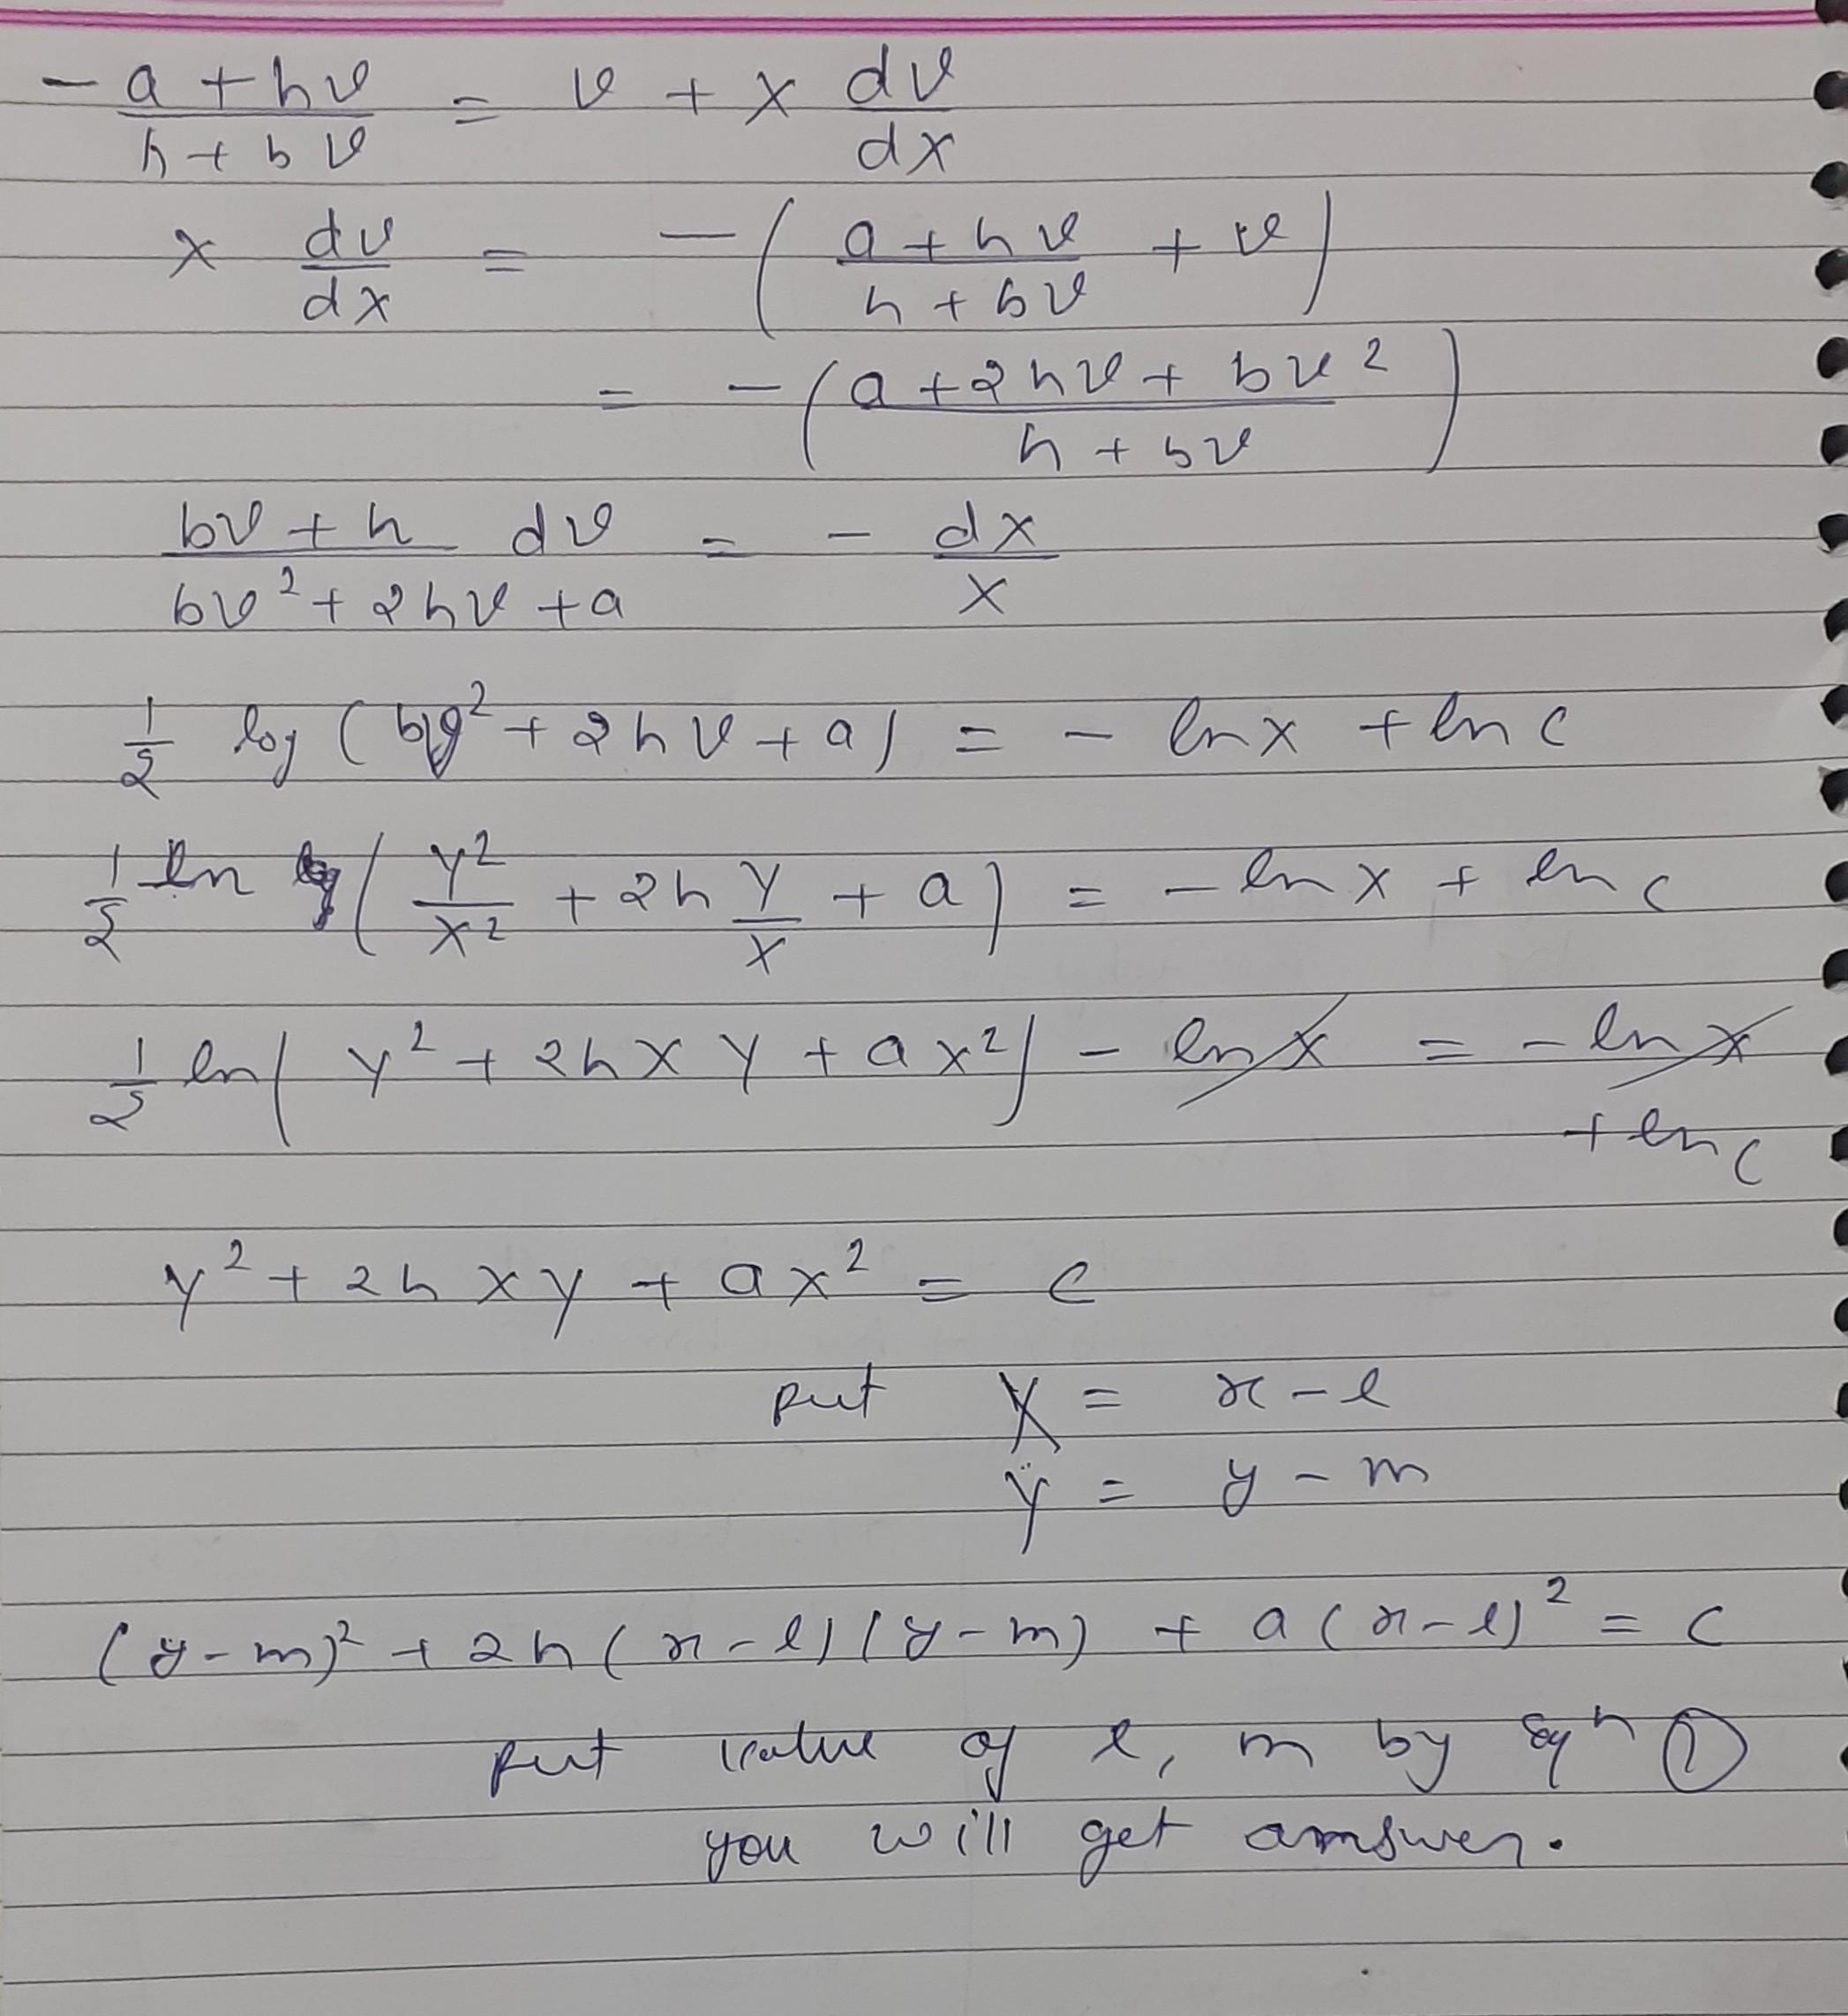 - (a + hv)/(h + bv) = v + x dv/dx
x dv/dx = - ( (a + hv)/(h + bv) + v )
= - ( (a + 2hv + bv²)/(h + bv) )
(bv + h)/(bv² + 2hv + a) dv = - dx/x
1/2 log (bv² + 2hv + a) = - ln x + ln c
1/2 ln ( Y²/X² + 2h Y/X + a ) = - ln x + ln c
1/2 ln ( Y² + 2h X Y + a X² ) - ln x = - ln x
+ ln c
Y² + 2h X Y + a X² = c
put X = x - l
Y = y - m
(y - m)² + 2h (x - l) (y - m) + a (x - l)² = c
put value of l, m by eqⁿ ①
you will get answer.